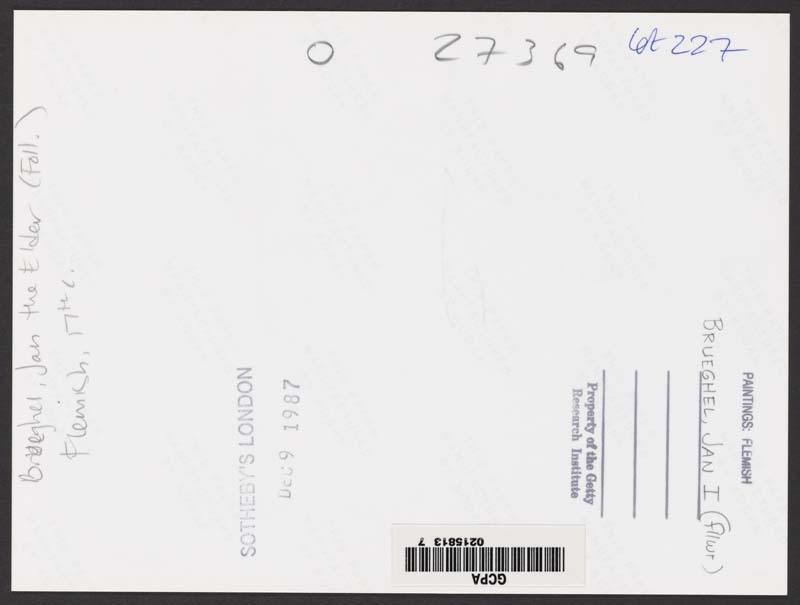 O
27369
lot 227
Brueghel, Jan the Elder (Foll.)
Flemish, 17th c.
SOTHEBY'S LONDON
DEC 9 1987
PAINTINGS: FLEMISH
BRUEGHEL, JAN I (fllwr)
Property of the Getty
Research Institute
GCPA
0215813 7